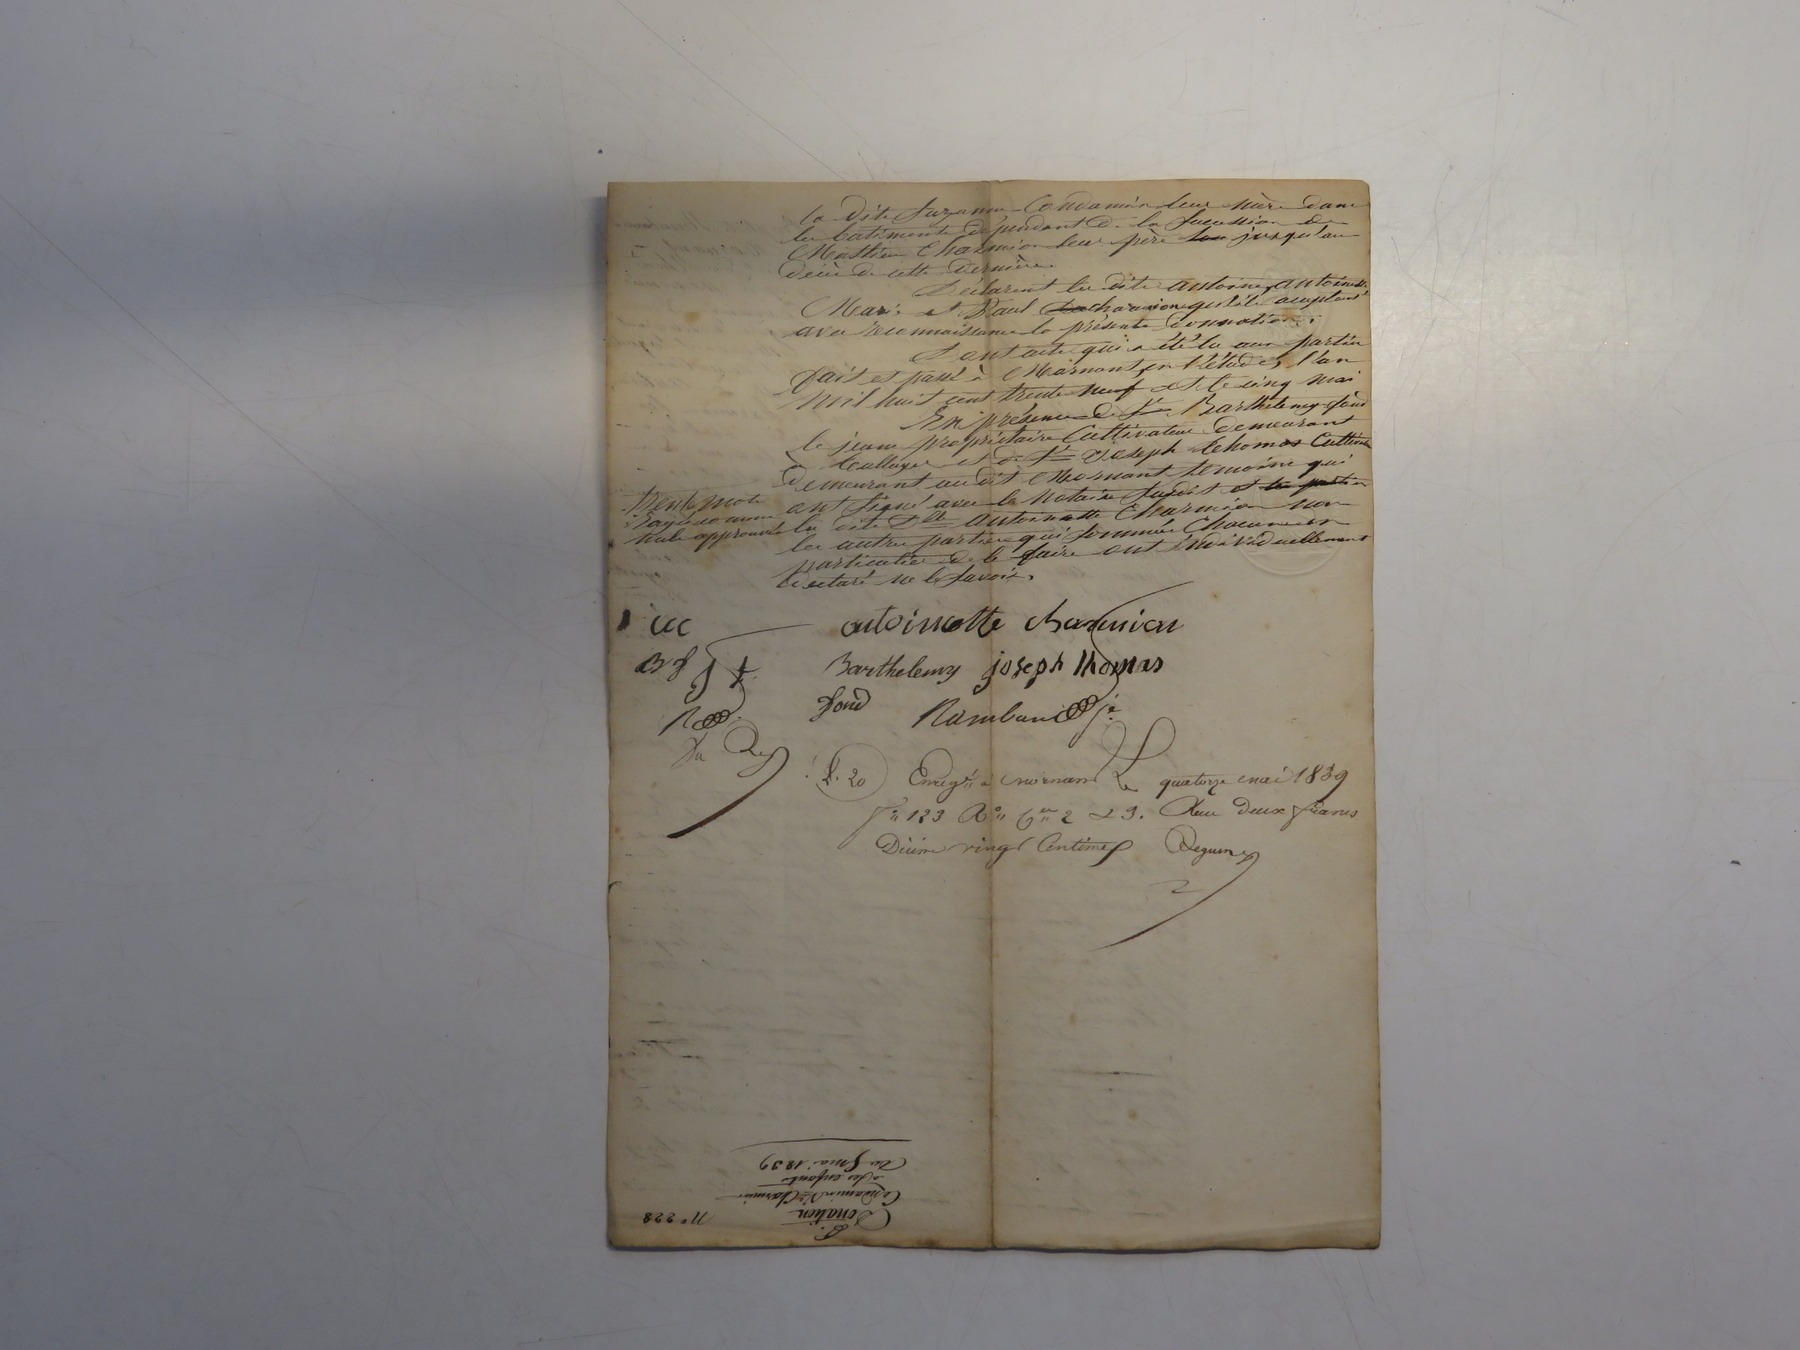 la dite Suzanne Condamin leur mère dans
les batiments dépendant de la Succession de
Mathieu Charmion leur père jusqu'au
décès de cette dernière.
Déclarent les dits antoine, antoinette
Marie et Paul Charmion qu'ils acceptent
avec reconnaissance la présente donnation.
Dont acte qui a été lu aux parties
fait et passé à Mornant, en l'étude, l'an
mil huit cent trente neuf et le cinq mai
En présence de Sr Barthelemy fond
le jeune propriétaire Cultivateur demeurant
à et de Sr Joseph thomas Cultivateur
demeurant audit Mornant temoins qui
ont signé avec le Notaire Susdit et les parties
la dite antoinette Charmion non
les autres parties qui sommées Chacune en
particulier de le faire ont individuellement
déclaré ne le Savoir.
trente mots
rayés comme
nuls approuvés
antoinette charmion
Bf Jt Barthelemy joseph thomas
fond Rambaud je
f. 20 Enregt à mornant Le quatorze mai 1839
fo 123 Ro Cer 2 & 3. Reçu deux francs
Dixime vingt Centimes
Donation
Condamin Ve Charmion
à ses enfants
du 5 mai 1839
No 228